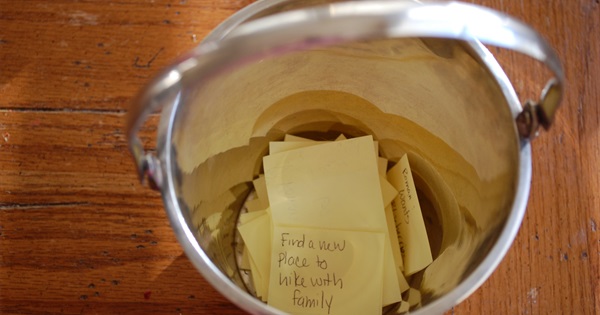 Find a new
place to
hike with
family